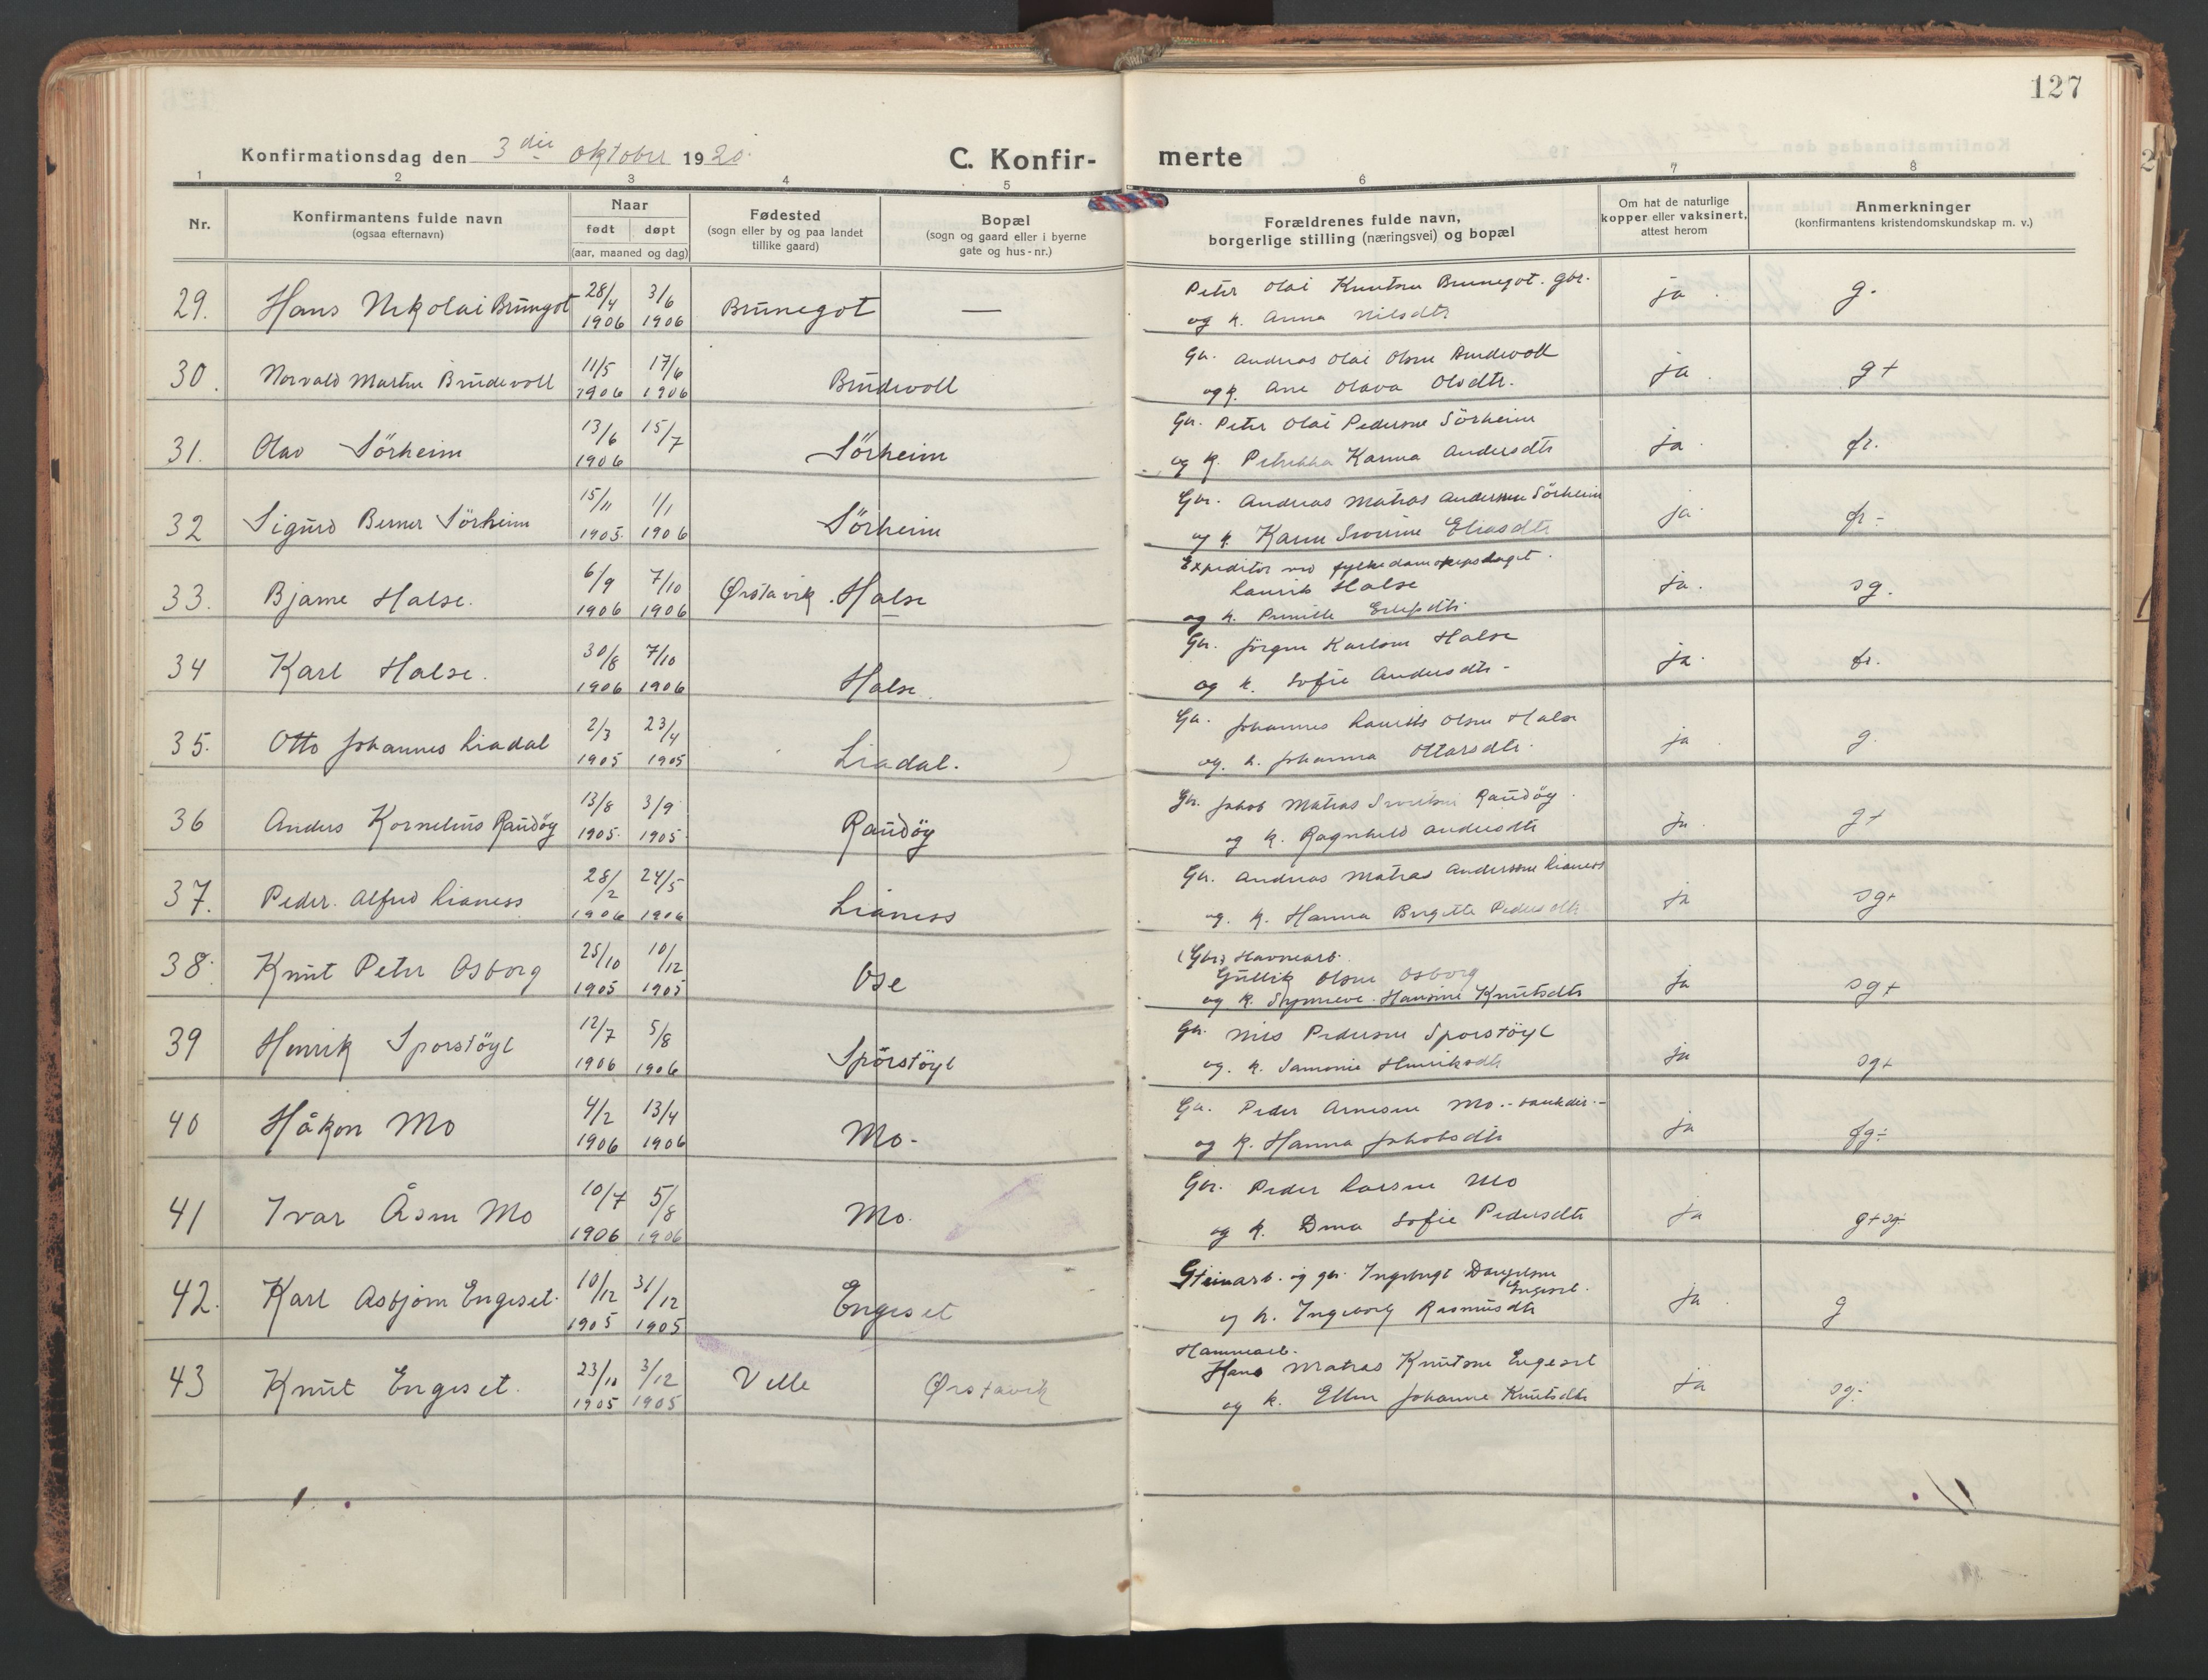 127
Konfirmationsdag den 3die oktober 1920.
C. Konfir- merte
1 2 3 4 5 6 7 8
Nr.
Konfirmantens fulde navn
(ogsaa efternavn)
Naar
født døpt
(aar, maaned og dag)
Fødested
(sogn eller by og paa landet
tillike gaard)
Bopæl
(sogn og gaard eller i byerne
gate og hus-nr.)
Forældrenes fulde navn,
borgerlige stilling (næringsvei) og bopæl
Om hat de naturlige
kopper eller vaksinert,
attest herom
Anmerkninger
(konfirmantens kristendomskundskap m. v.)
29. Hans Nikolai Brungot 28/4 1906 3/6 1906 Brunegot —
Peter Olai Knutsen Brunegot. gbr.
og k. Anna Nilsdtr
ja. g.
30. Norvald Martin Brudevoll 11/5 1906 17/6 1906 Brudevoll
Gbr. Andreas Olai Olsen Brudevoll
og k. Ane Olava Olsdtr.
ja. g+
31. Olav Sörheim 13/6 1906 15/7 Sörheim
Gbr. Peter Olai Pedersen Sörheim
og k. Petrikka Karina Andersdtr
ja. fr.
32 Sigurd Berner Sörheim 15/11 1905. 1/1 1906 Sörheim
Gbr. Andreas Matias Andersen Sörheim
og k. Karen Severine Eliasdtr
ja. fr-
33. Bjarne Halse. 6/9 1906 7/10 1906 Ørstavik. Halse
Expeditör ved fylkesdampskipsselskapet.
Laurits Halse
og k. Pernille
ja. sg.
34 Karl Halse. 30/8 1906 7/10 1906 Halse.
Gbr. Jörgen Karlsen Halse
og k. Sofie Andersdtr-
ja. fr.
35. Otto Johannes Liadal 2/3 1905 23/4 1905 Liadal.
Gbr. Johannes Laurits Olsen Halse
og. k. Johanna Ottarsdtr.
ja. g.
36 Anders Kornelius Raudöy 13/8 1905. 3/9 1905. Raudöy
Gbr. Jakob Matias Sivertsen Raudöy.
og k. Ragnhild Andersdtr
ja. g+
37. Peder. Alfred Lianess 28/2 1906 24/5 1906 Lianess
Gbr. Andreas Matias Anderssen Lianess
og. k. Hanna Birgitte Pedersdtr
ja sg+
38. Knut Peter Osborg 25/10 1905 10/12 1905 Ose
(Gbr) Havnearb.
Gullik Olsen Osborg
og k. Synneve. Hansine Knutsdtr
ja sg+
39 Henrik Sporstöyl 12/7 1906 5/8 1906 Sporstöyl
Gbr. Nils Pedersen Sporstöyl
og. k. Samonie Henriksdtr
ja sg+
40 Håkon Mo 4/2 1906 13/4 1906 Mo-
Gbr. Peder Arnesen Mo.-
og k. Hanna Jakobsdtr
ja fg÷
41 Ivar Åsen Mo 10/7 1906 5/8 1906 Mo.
Gbr. Peder Larsen Mo
og k. Dina Sofie Pedersdtr
ja g+sg
42. Karl Asbjørn Engeset. 10/12 1905 31/12 1905 Engeset
Steinarb. og gbr. Ingebrigt Danielsen
Engeset.
og k. Ingeborg Rasmusdtr
ja. g
43 Knut Engeset. 23/10 1905 3/12 1905 Velle Ørstavik
Hammearb.
Hans Matias Knutsen Engeset
og k. Ellen Johanne Knutsdtr
ja sg÷